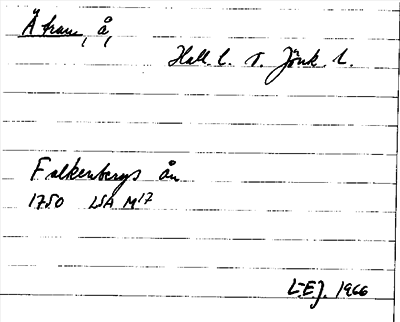 Ätran, å,
Hall. l. o. Jönk. l.
Falkenbergs ån
1750 LSA M17
L-E.J. 1966